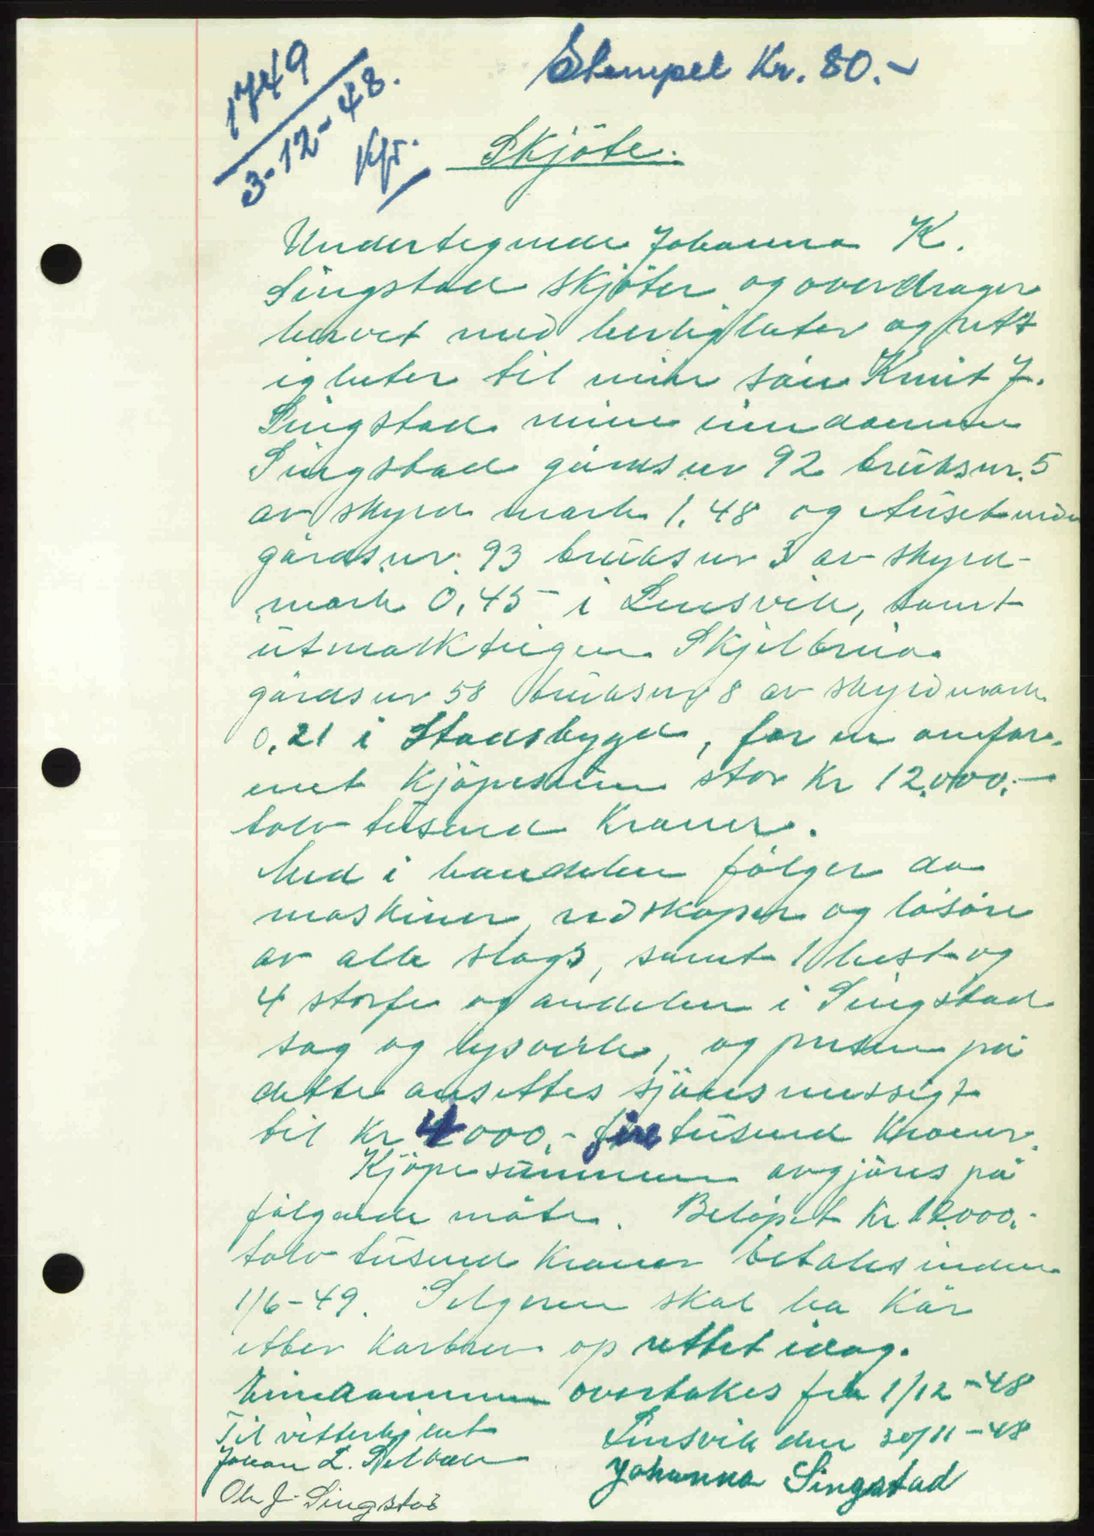 1749
3-12-48.
Kfr.
Stempel Kr. 80.-
Skjöte.
Undertegnede Johanna K.
Singstad skjöter og overdrager
hervet med herligheter og rett
igheter til min sön Knut J.
Singstad mine eiendommer
Singstad gårdsnr 92 bruksnr. 5
av skyld mark 1.48 og
gårdsnr. 93 bruksnr 3 av skyld-
mark 0,45 i Lensvik, samt
utmarkteigen Skjelbreia
gårdsnr 58 bruksnr 8 av skyldmark
0,21 i Stadsbygd, for en omfor-
enet kjöpesum stor Kr 12.000.-
tolv tusend Kroner.
Med i handelen fölger da
maskiner, redskaper og lösöre
av alle slags, samt 1 hest og
4 storfe og andelen i Singstad
sag og lysverk, og prisen på
dette ansettes skjönsmessigt
til Kr 4000,- fire tusend Kroner.
Kjöpesummen avgjöres på
fölgende måte. Belöpet Kr 12.000.-
tolv tusend kroner betales inden
1/6-49. Selgeren skal ha Kår
etter Kårbrev op rettet idag.
Eiendommen overtakes fra 1/12-48
Til vitterlighet
Lensvik den 30/11-48
Johan L. Selbæk
Johanna Singstad
Ole J. Singstad